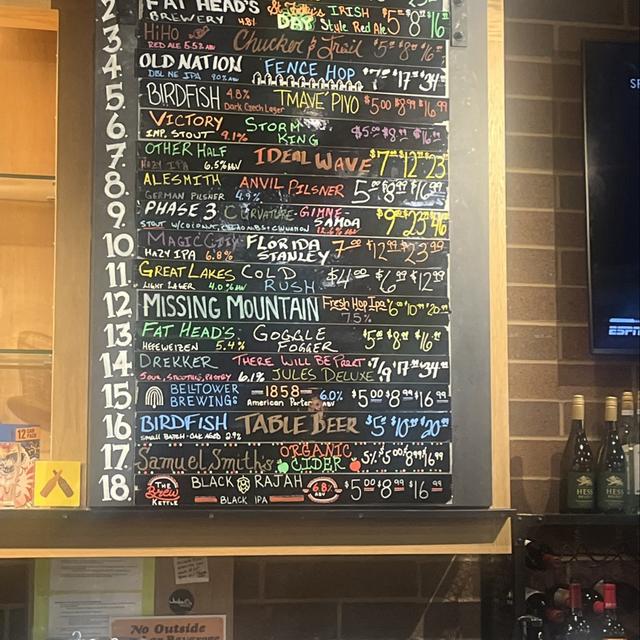 2. FAT HEAD'S St. Fatty's IRISH $5 $8 $16
BREWERY 4.8% DAY Style Red Ale
3. HiHO Chucker & Trail $5 $8 $16
RED ALE 5.5% ABV
4. OLD NATION FENCE HOP $7 $17 $34
DBL NE IPA ABV
5. BIRDFISH 4.8% TMAVE' PIVO $5.00 $8.99 $16.99
Dark Czech Lager
6. VICTORY STORM KING $5.00 $8.99 $16.99
IMP. STOUT 9.1%
7. OTHER HALF IDEAL WAVE $7 $12 $23
HAZY IPA 6.5% ABV
8. ALESMITH ANVIL PILSNER 5.00 $8.99 $16.99
GERMAN PILSNER 4.9%
9. PHASE 3 CURVATURE-GIMME-SAMOA $9 $23 $46
STOUT W/COCONUT, CINNAMON
10. MAGIC CITY FLORIDA STANLEY 7.00 $12.99 $23.99
HAZY IPA 6.8%
11. GREAT LAKES COLD RUSH $4.00 $6.99 $12.99
LIGHT LAGER 4.0% ABV
12 MISSING MOUNTAIN Fresh Hop Ipa $6.00 $10.99 $20.99
7.5%
13 FAT HEAD'S GOGGLE FOGGER $5 $8 $16
HEFEWEIZEN 5.4%
14 DREKKER THERE WILL BE $17 $34
SOUR, SMOOTHIE, PASTRY 6.1% JULES DELUXE
15 BELLTOWER BREWING 1858 6.0% ABV $5.00 $8.99 $16.99
American Porter
16 BIRDFISH TABLE BEER $5 $10.99 $20.99
SMALL BATCH - OAK AGED 2.9%
17. Samuel Smith's ORGANIC CIDER 5% $5.00 $8.99 $16.99
18. THE Brew KETTLE BLACK RAJAH 6.8% ABV $5.00 $8.99 $16.99
BLACK IPA
SP
ESPN
HESS
HESS
No Outside